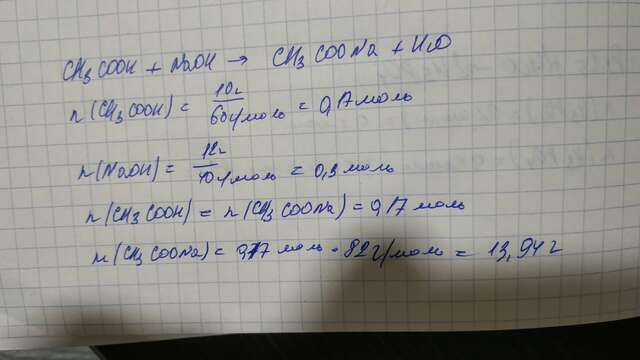 CH3COOH + NaOH → CH3COONa + H2O
n(CH3COOH) = 10г / 60г/моль = 0,17 моль
n(NaOH) = 12г / 40г/моль = 0,3 моль
n(CH3COOH) = n(CH3COONa) = 0,17 моль
m(CH3COONa) = 0,17 моль · 82 г/моль = 13,94 г